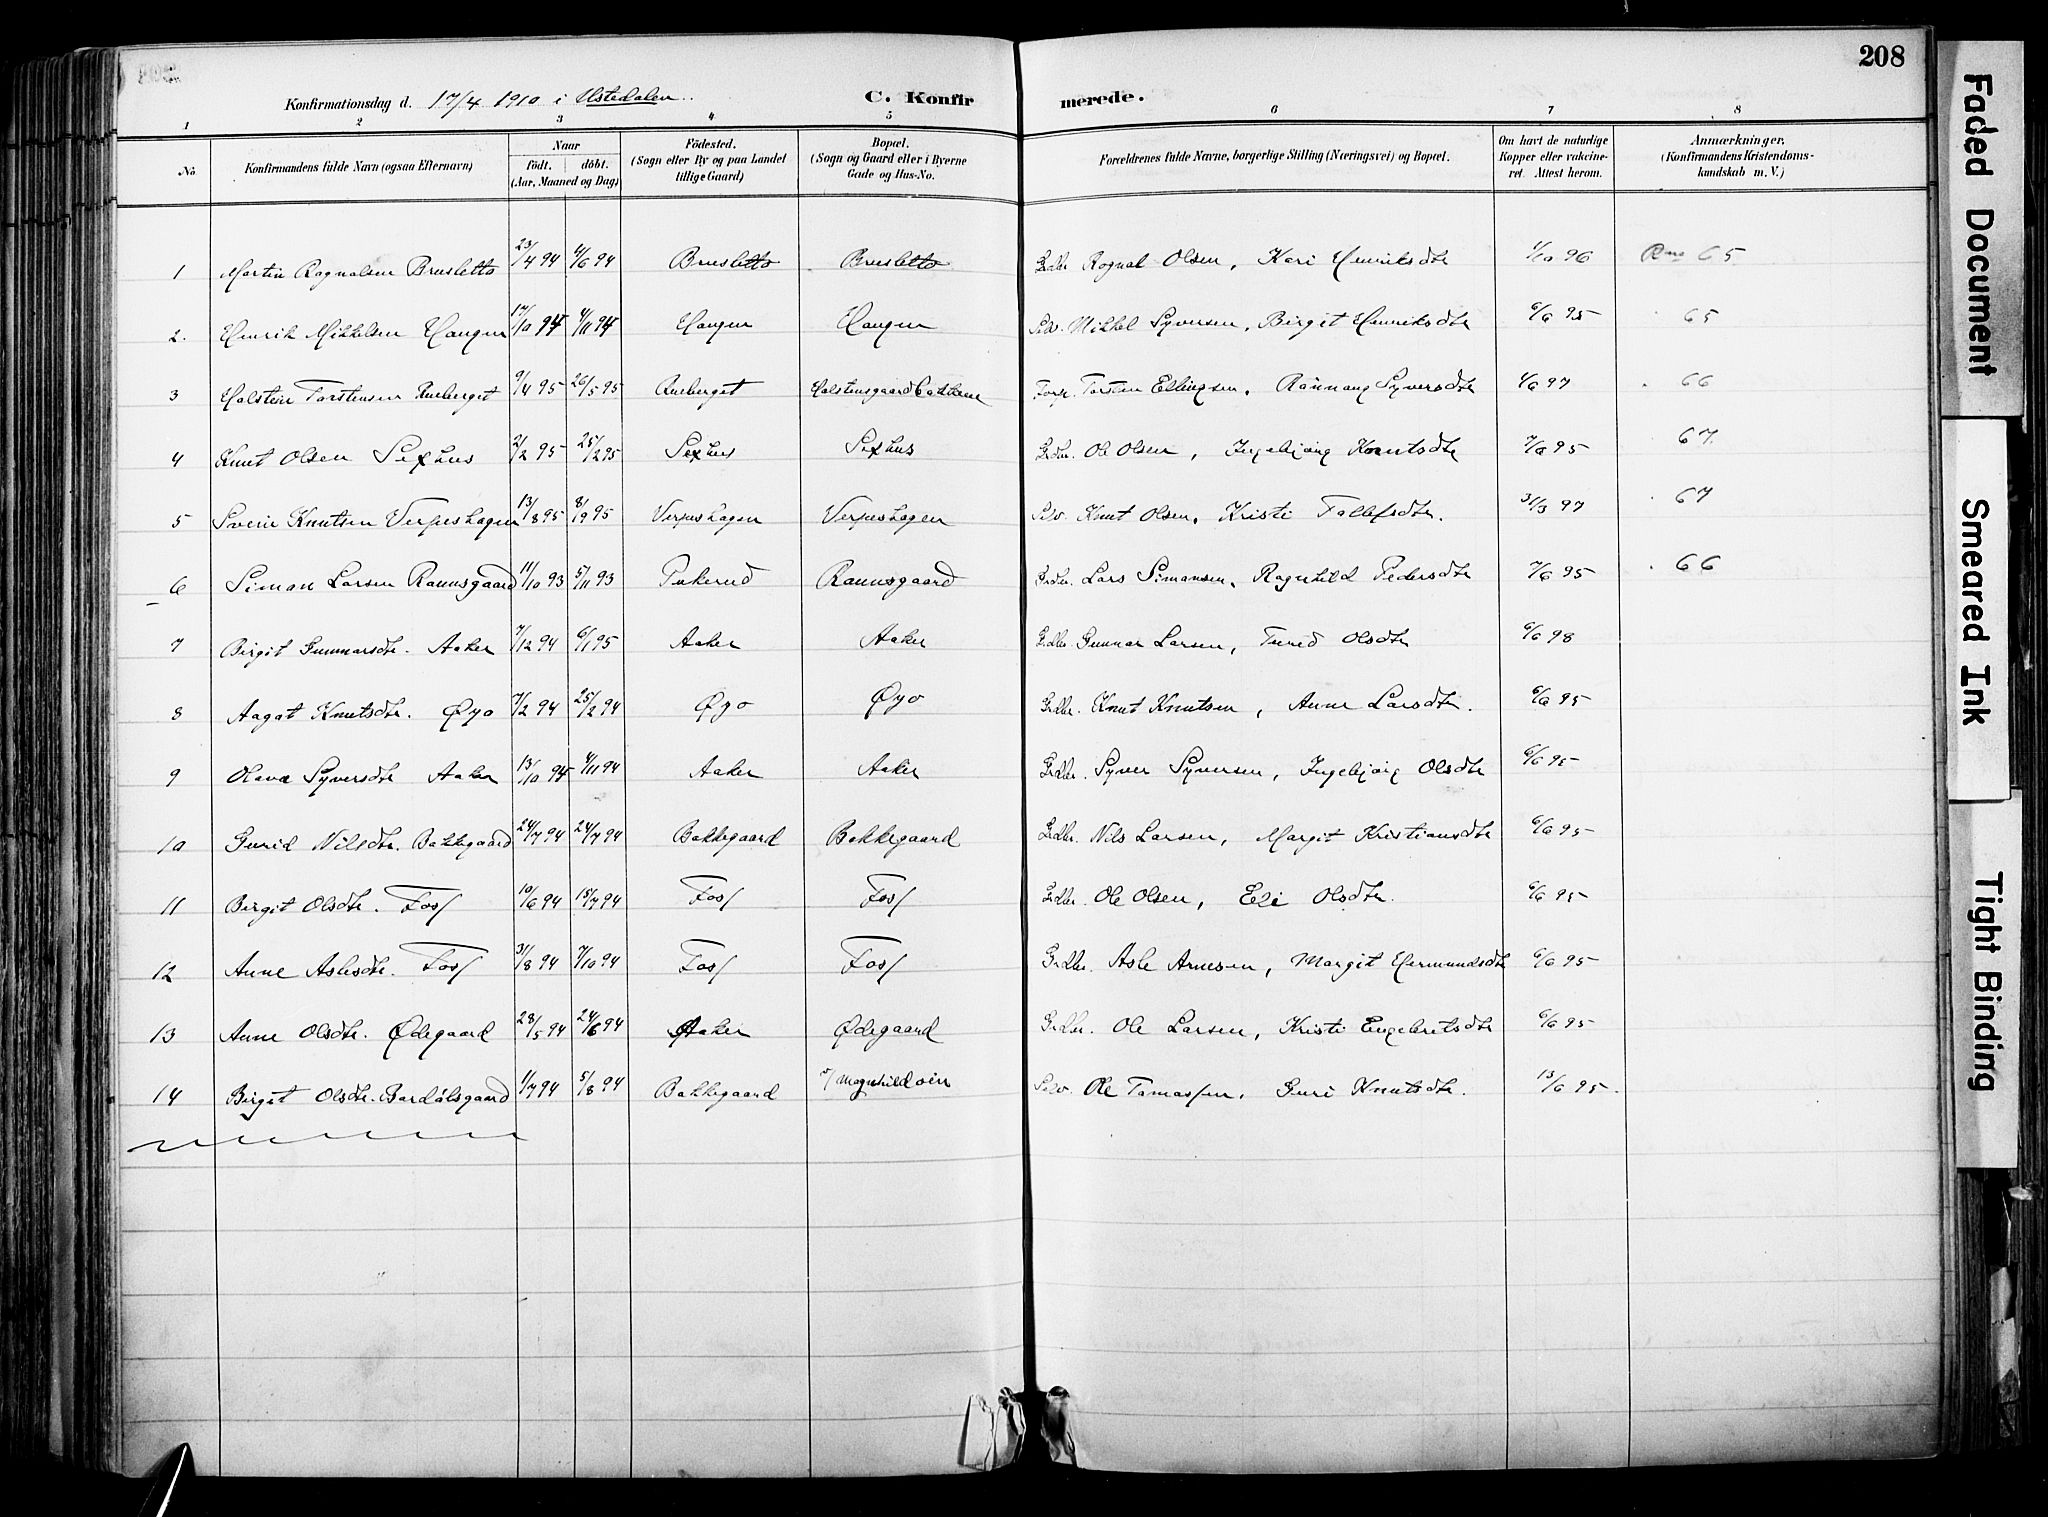 208
Konfirmationsdag d. 17/4 1910 i Ustedalen. C. Konfirmerede.
1 2 3 4 5 6 7 8
No Konfirmandens fulde Navn (ogsaa Efternavn) Naar født. døbt. (Aar, Maaned og Dag) Fødested. (Sogn eller By og paa Landet tillige Gaard) Bopæl. (Sogn og Gaard eller i Byerne Gade og Hus-No. Forældrenes fulde Navne, borgerlige Stilling (Næringsvei) og Bopæl. Om havt de naturlige Kopper eller vakcineret. Attest herom. Anmærkninger. (Konfirmandens Kristendomskundskab m. V.)
1 Martin Ragnalsen Brusletto 23/4 94 4/6 94 Brusletto Brusletto Grdbr. Ragnal Olsen, Kari Henriksdtr 1/10 96 65
2. Henrik Mikkelsen Haugen 17/10 94 4/11 94 Haugen Haugen Selv. Mikkel Syversen, Birgit Henriksdtr 6/6 95 65
3 Holstein Torstensen Rueberget 9/4 95 26/5 95 Rueberget Holstensgaardbakkene Torsten Ellingsen, Rannang Syversdtr 4/6 97 66
4 Knut Olsen Sexhus 2/2 95 25/2 95 Sexhus Sexhus Grdbr. Ole Olsen, Ingebjørg Knutsdtr 7/6 95 67
5 Svein Knutsen Verpeshagen 13/8 95 8/9 95 Verpeshagen Verpeshagen Selv. Knut Olsen, Kristi Tollefsdtr. 3/3 97 67
6 Simon Larsen Raunsgaard 11/10 93 5/11 93 Pukerud Raunsgaard Grdbr. Lars Simonsen, Ragnhild Pedersdtr 7/6 95 66
7 Birgit Gunnarsdtr. Aaker 7/12 94 6/1 95 Aaker Aaker Grdbr. Gunnar Larsen, Turid Olsdtr 6/6 98
8 Aagot Knutsdtr. Øyo 7/2 94 25/2 94 Øyo Øyo Grdbr. Knut Knutsen, Anne Larsdtr. 6/6 95
9 Olava Syversdtr Aaker 13/10 94 4/11 94 Aaker Aaker Grdbr. Syver Syversen, Ingebjørg Olsdtr 6/6 95
10 Gurid Nilsdtr. Bakkegaard 24/7 94 Bakkegaard Bakkegaard Grdbr. Nils Larsen, Margit Kristiansdtr 6/6 95
11 Birgit Olsdtr. Foss 10/6 94 15/7 94 Foss Foss Grdbr. Ole Olsen, Eli Olsdtr. 6/6 95
12 Anne Aslesdtr. Foss 31/8 94 7/10 94 Foss Foss Grdbr. Asle Arnesen, Margit Hermundsdtr 6/6 95
13 Anne Olsdtr. Ødegaard 28/5 94 24/6 94 Aaker Ødegaard Grdbr. Ole Larsen, Kristi Engebretsdtr 6/6 95
14 Birgit Olsdtr. Bardølsgaard 1/7 94 5/8 94 Bakkegaard Magnhildoien Selv. Ole Tomassen, Guri Knutsdtr. 13/6 95.
Faded Document
Smeared Ink
Tight Binding